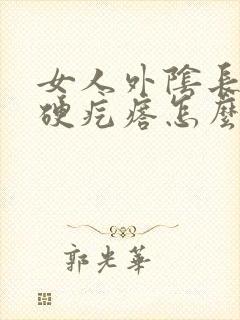 女人外陰長
硬疙瘩怎麼
郭光華